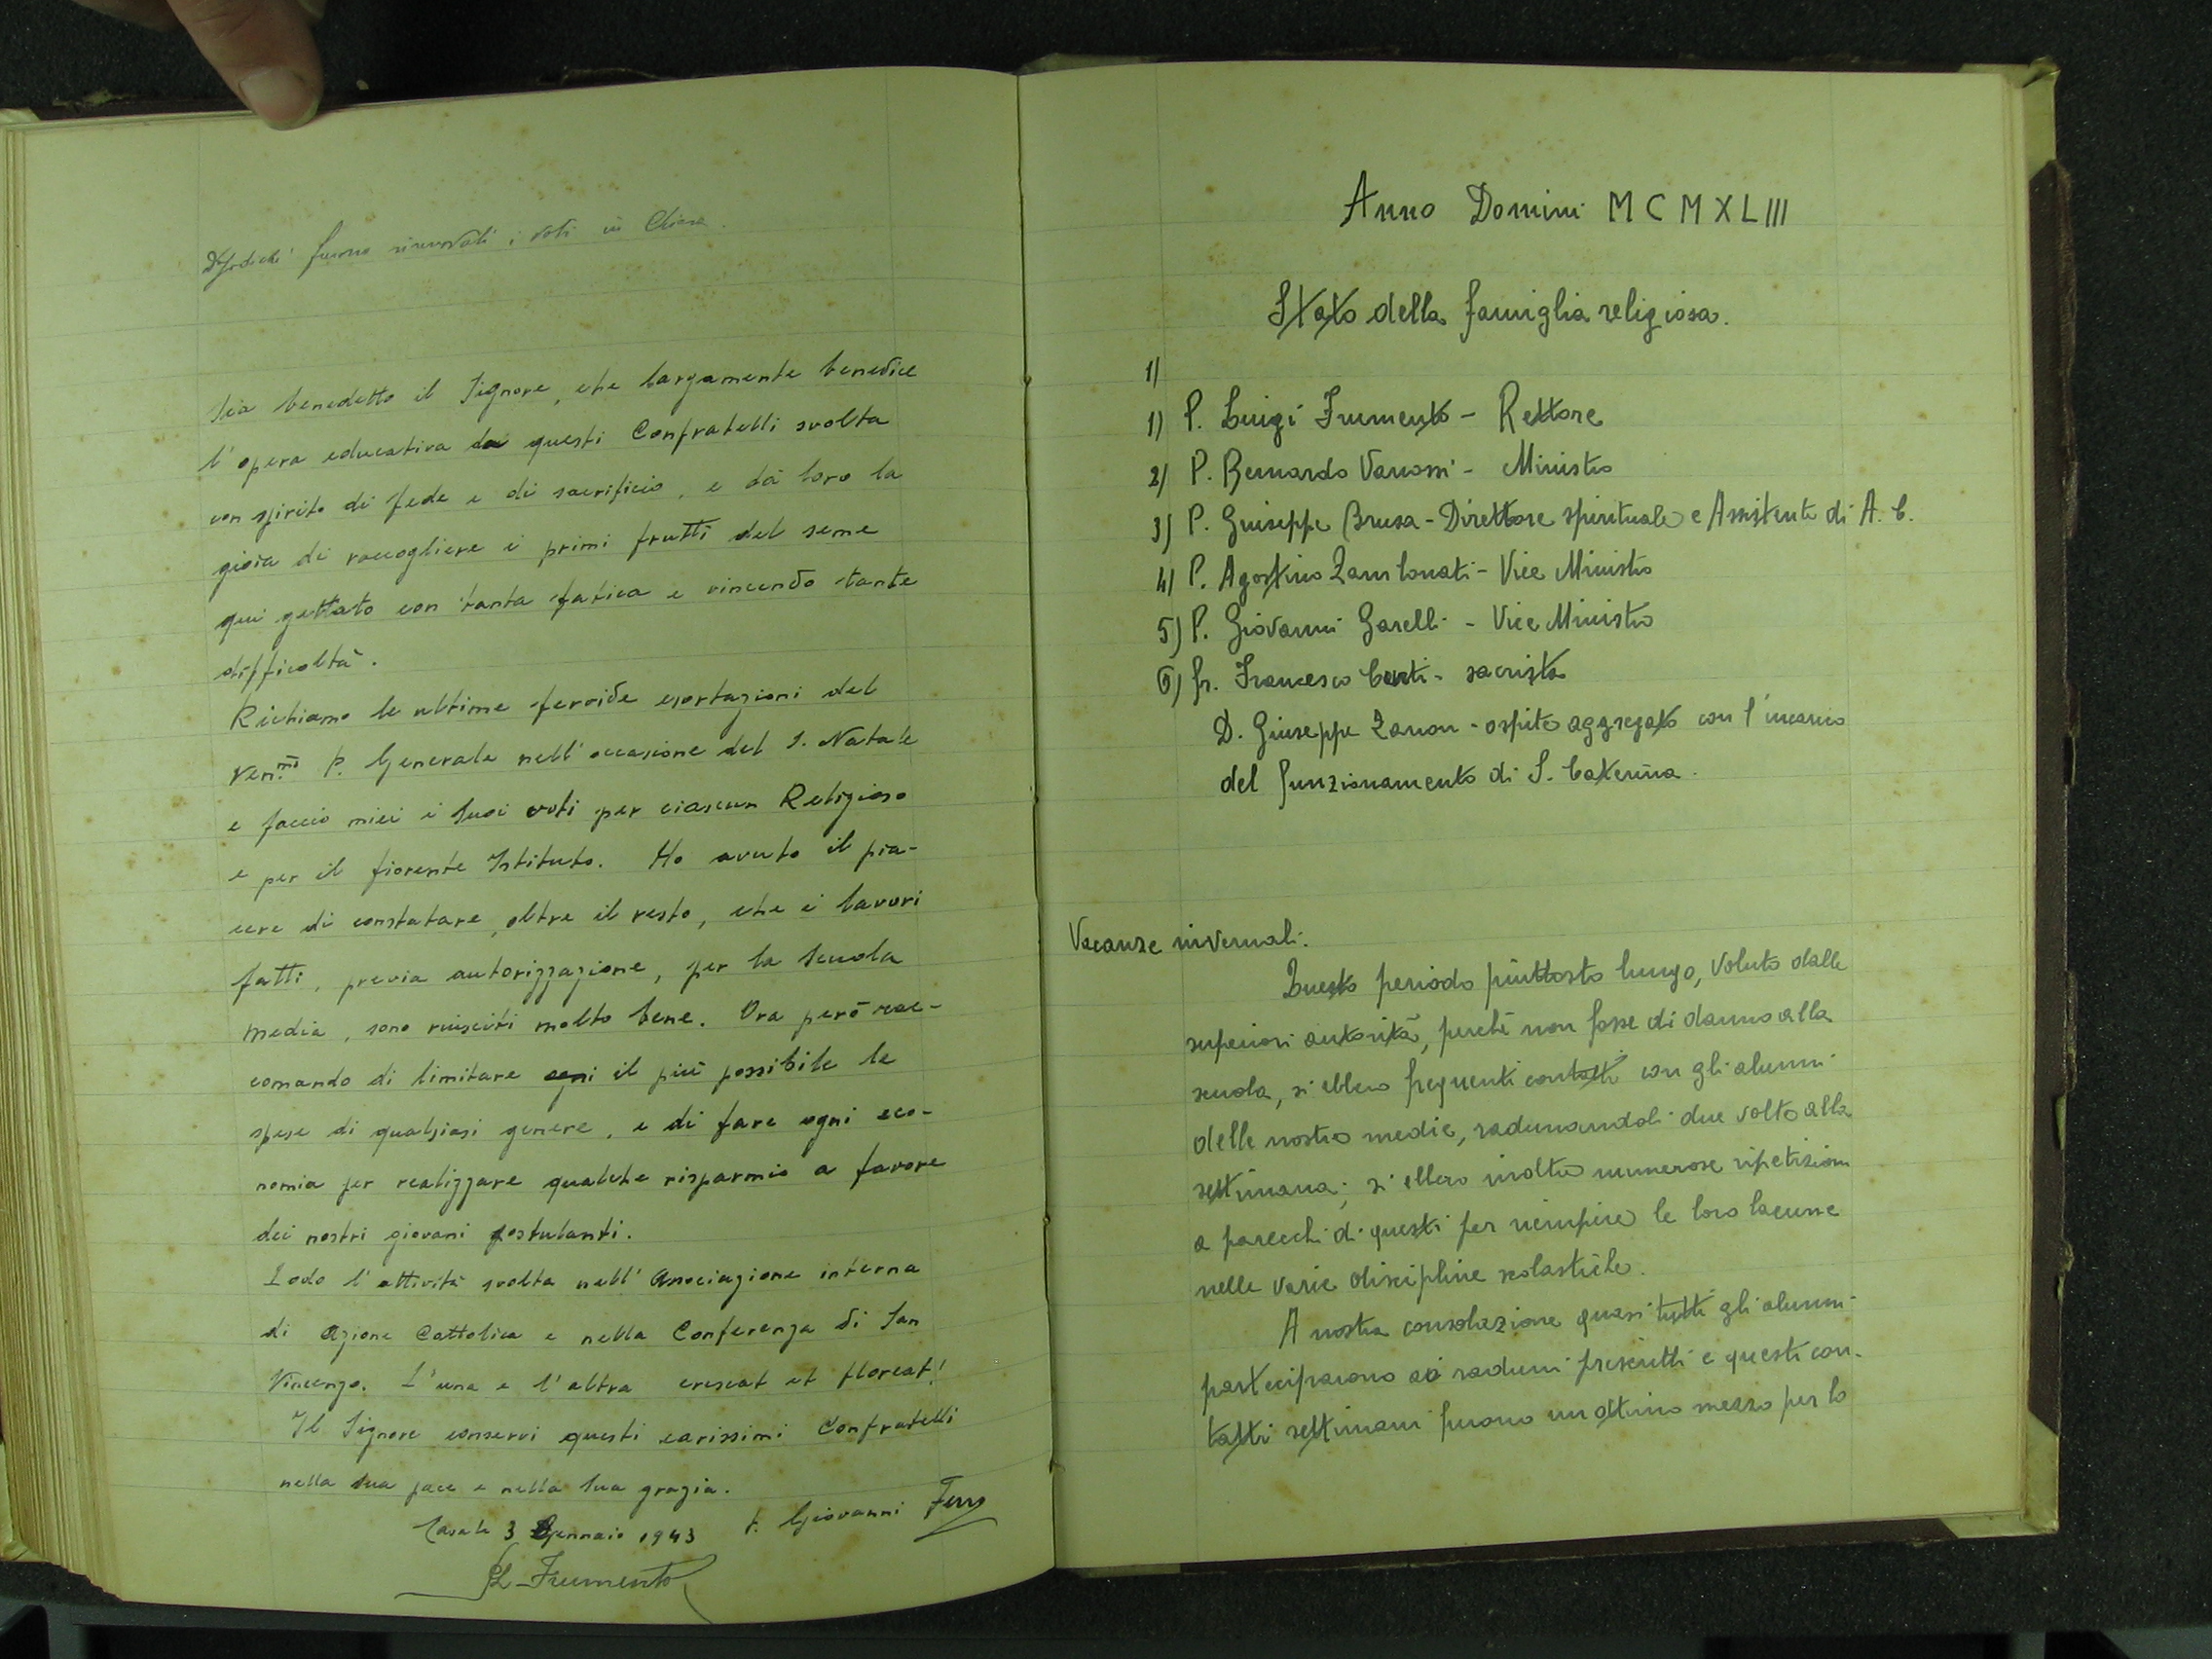 furono rinnovati i voti in Chiesa.
Sia benedetto il Signore, che largamente benedice
l'opera educativa da questi Confratelli svolta
con spirito di fede e di sacrificio, e dà loro la
gioia di raccogliere i primi frutti del seme
qui gettato con tanta fatica e vincendo tante
difficoltà.
Richiamo le ultime fervide esortazioni del
Ven.mo P. Generale nell'occasione del S. Natale
e faccio miei i Suoi voti per ciascun Religioso
e per il fiorente Istituto. Ho avuto il pia-
cere di constatare, oltre il resto, che i lavori
fatti, previa autorizzazione, per la Scuola
media, sono riusciti molto bene. Ora però rac-
comando di limitare ogni il più possibile le
spese di qualsiasi genere, e di fare ogni eco-
nomia per realizzare qualche risparmio a favore
dei nostri giovani postulanti.
Lodo l'attività svolta nell'Associazione interna
di Azione Cattolica e nella Conferenza di San
Vincenzo. L'una e l'altra crescat et floreat!
Il Signore conservi questi carissimi Confratelli
nella Sua pace e nella Sua grazia.
Casale 3 Gennaio 1943 P. Giovanni Ferro
PL Frumento
Anno Domini MCMXLIII
Stato della famiglia religiosa.
1)
1) P. Luigi Frumento - Rettore
2) P. Bernardo Vanossi - Ministro
3) P. Giuseppe Brusa - Direttore spirituale e Assistente di A. C.
4) P. Agostino Zambonati - Vice Ministro
5) P. Giovanni Garelli - Vice Ministro
6) fr. Francesco Conti - sacrista
D. Giuseppe Zanon - ospite aggregato con l'incarico
del funzionamento di S. Caterina.
Vacanze invernali.
Questo periodo piuttosto lungo, voluto dalle
superiori autorità, perchè non fosse di danno alla
scuola, si ebbero frequenti contatti con gli alunni
delle nostre medie, radunandoli due volte alla
settimana; si ebbero inoltre numerose ripetizioni
a parecchi di questi per riempire le loro lacune
nelle varie discipline scolastiche.
A nostra consolazione quasi tutti gli alunni
parteciparono ai raduni prescritti e questi con-
tatti settimani furono un ottimo mezzo per lo